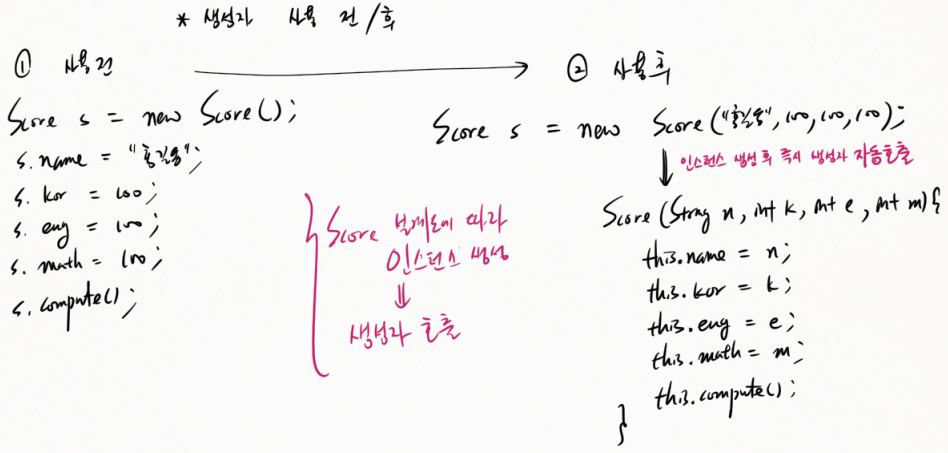 * 생성자 사용 전/후
① 사용전
② 사용후
Score s = new Score();
s.name = "홍길동";
s. kor = 100;
s. eng = 100;
s. math = 100;
s. compute();
Score 설계도에 따라
인스턴스 생성
⇓
생성자 호출
Score s = new Score("홍길동", 100, 100, 100);
인스턴스 생성 후 즉시 생성자 자동호출
Score(String n, int k, int e, int m){
this.name = n;
this.kor = k;
this.eng = e;
this.math = m;
this.compute();
}